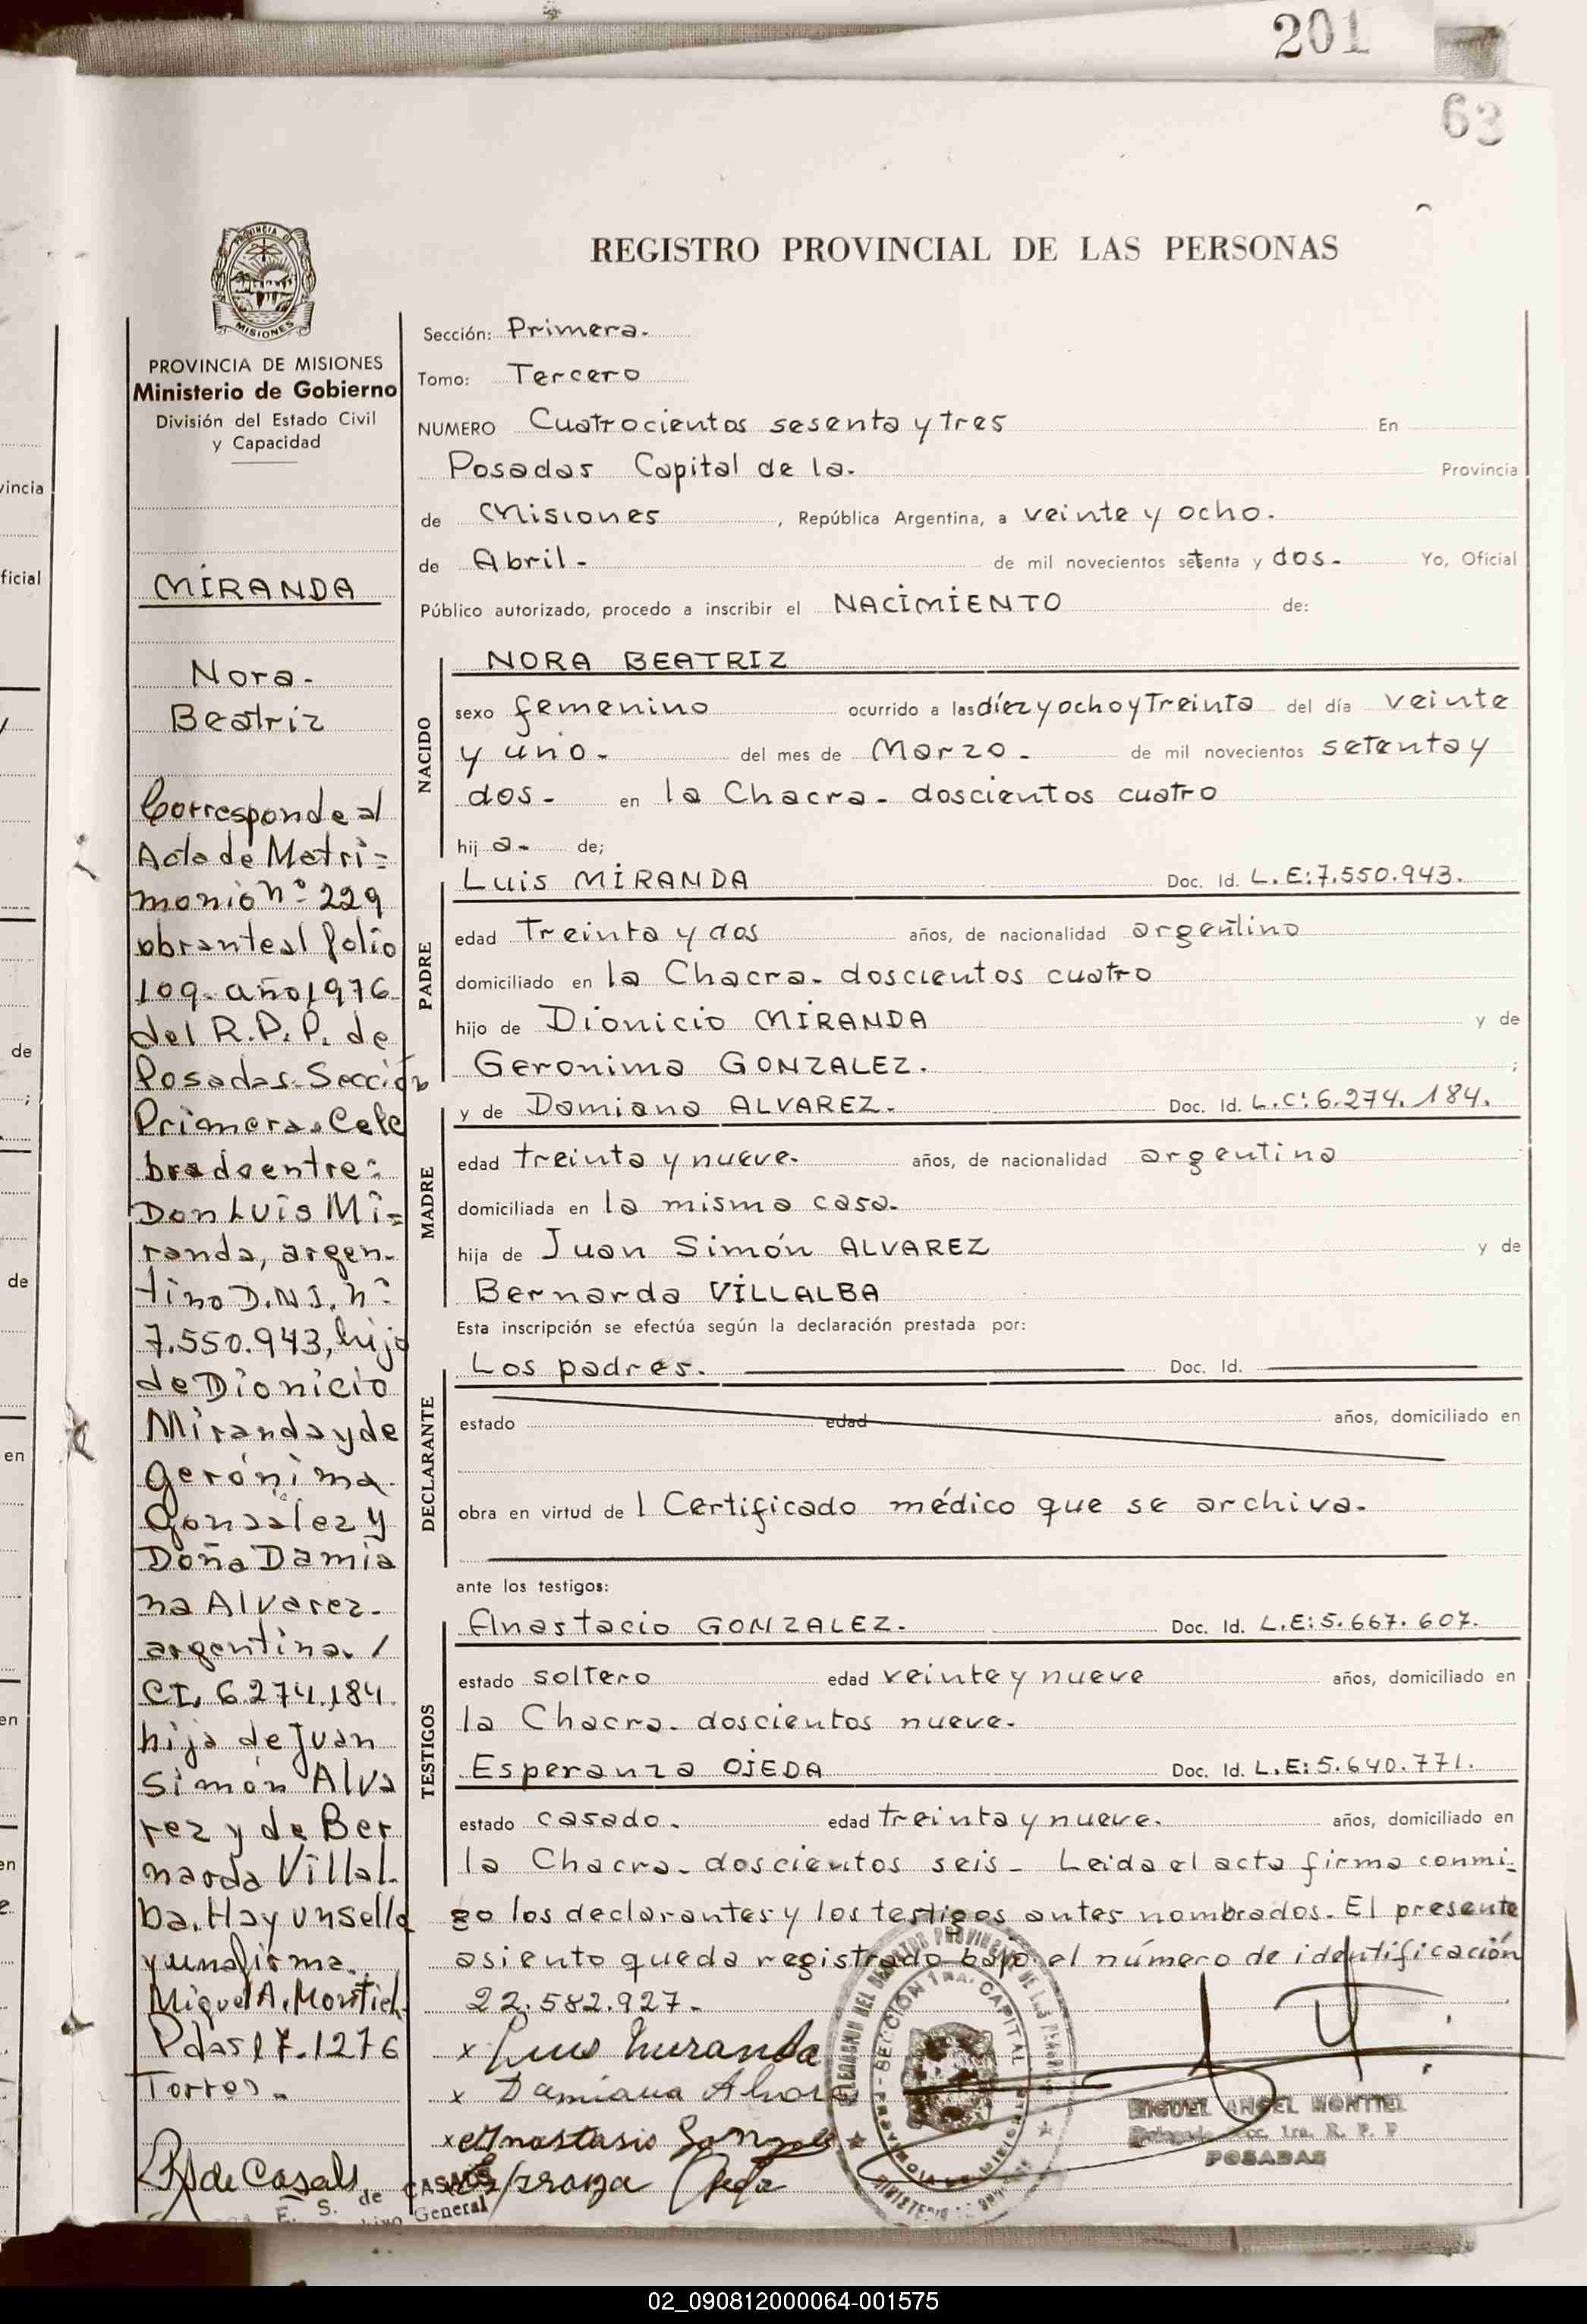 201
63
REGISTRO PROVINCIAL DE LAS PERSONAS
PROVINCIA DE MISIONES
Ministerio de Gobierno
División del Estado Civil
y Capacidad
MIRANDA
Nora-
Beatriz
Corresponde al
Acta de Matri=
monio nº 229
obrante al folio
109- año 1976
del R.P.P. de
Posadas- Sección
Primera. Cele
brado entre:
Don Luis Mi=
randa, argen-
tino D.N.I. nº
7.550.943, hijo
de Dionicio
Miranda y de
Gerónima
González y
Doña Damia
na Alvarez-
argentina. /
CI. 6.274.184.
hija de Juan
Simón Alva
rez y de Ber
narda Villal-
ba. Hay un sello
y una firma.
Miguel A. Montiel.
Pdas 17.1276
Torres.-
Sección: Primera-
Tomo: Tercero
NUMERO Cuatrocientos sesenta y tres En
Posadas Capital de la- Provincia
de Misiones, República Argentina, a veinte y ocho-
de Abril- de mil novecientos setenta y dos- Yo, Oficial
Público autorizado, procedo a inscribir el NACIMIENTO de:
NACIDO
NORA BEATRIZ
sexo femenino ocurrido a las diez y ocho y Treinta del día veinte
y uno- del mes de Marzo- de mil novecientos setenta y
dos- en la Chacra- doscientos cuatro
hij a- de;
PADRE
Luis MIRANDA Doc. Id. L.E:7.550.943.
edad Treinta y dos años, de nacionalidad argentino
domiciliado en la Chacra- doscientos cuatro
hijo de Dionicio MIRANDA y de
Geronima GONZALEZ. ;
MADRE
y de Damiana ALVAREZ- Doc. Id. L.C:6.274.184.
edad treinta y nueve- años, de nacionalidad argentina
domiciliada en la misma casa-
hija de Juan Simón ALVAREZ y de
Bernarda VILLALBA
Esta inscripción se efectúa según la declaración prestada por:
DECLARANTE
Los padres. Doc. Id.
estado edad años, domiciliado en
obra en virtud de 1 Certificado médico que se archiva.
ante los testigos:
TESTIGOS
Anastacio GONZALEZ. Doc. Id. L.E:5.667.607.
estado soltero edad veinte y nueve años, domiciliado en
la Chacra- doscientos nueve-
Esperanza OJEDA Doc. Id. L.E:5.640.771.
estado casado- edad treinta y nueve- años, domiciliado en
la Chacra- doscientos seis- Leida el acta firma conmi-
go los declarantes y los testigos antes nombrados- El presente
asiento queda registrado bajo el número de identificación
22.582.927-
x Luis Miranda
x Damiana Alvarez
x Anastasio Gonzalez
MIGUEL ANGEL MONTIEL
POSADAS
de Casals
E. S. de CASALS
General
02_090812000064-001575